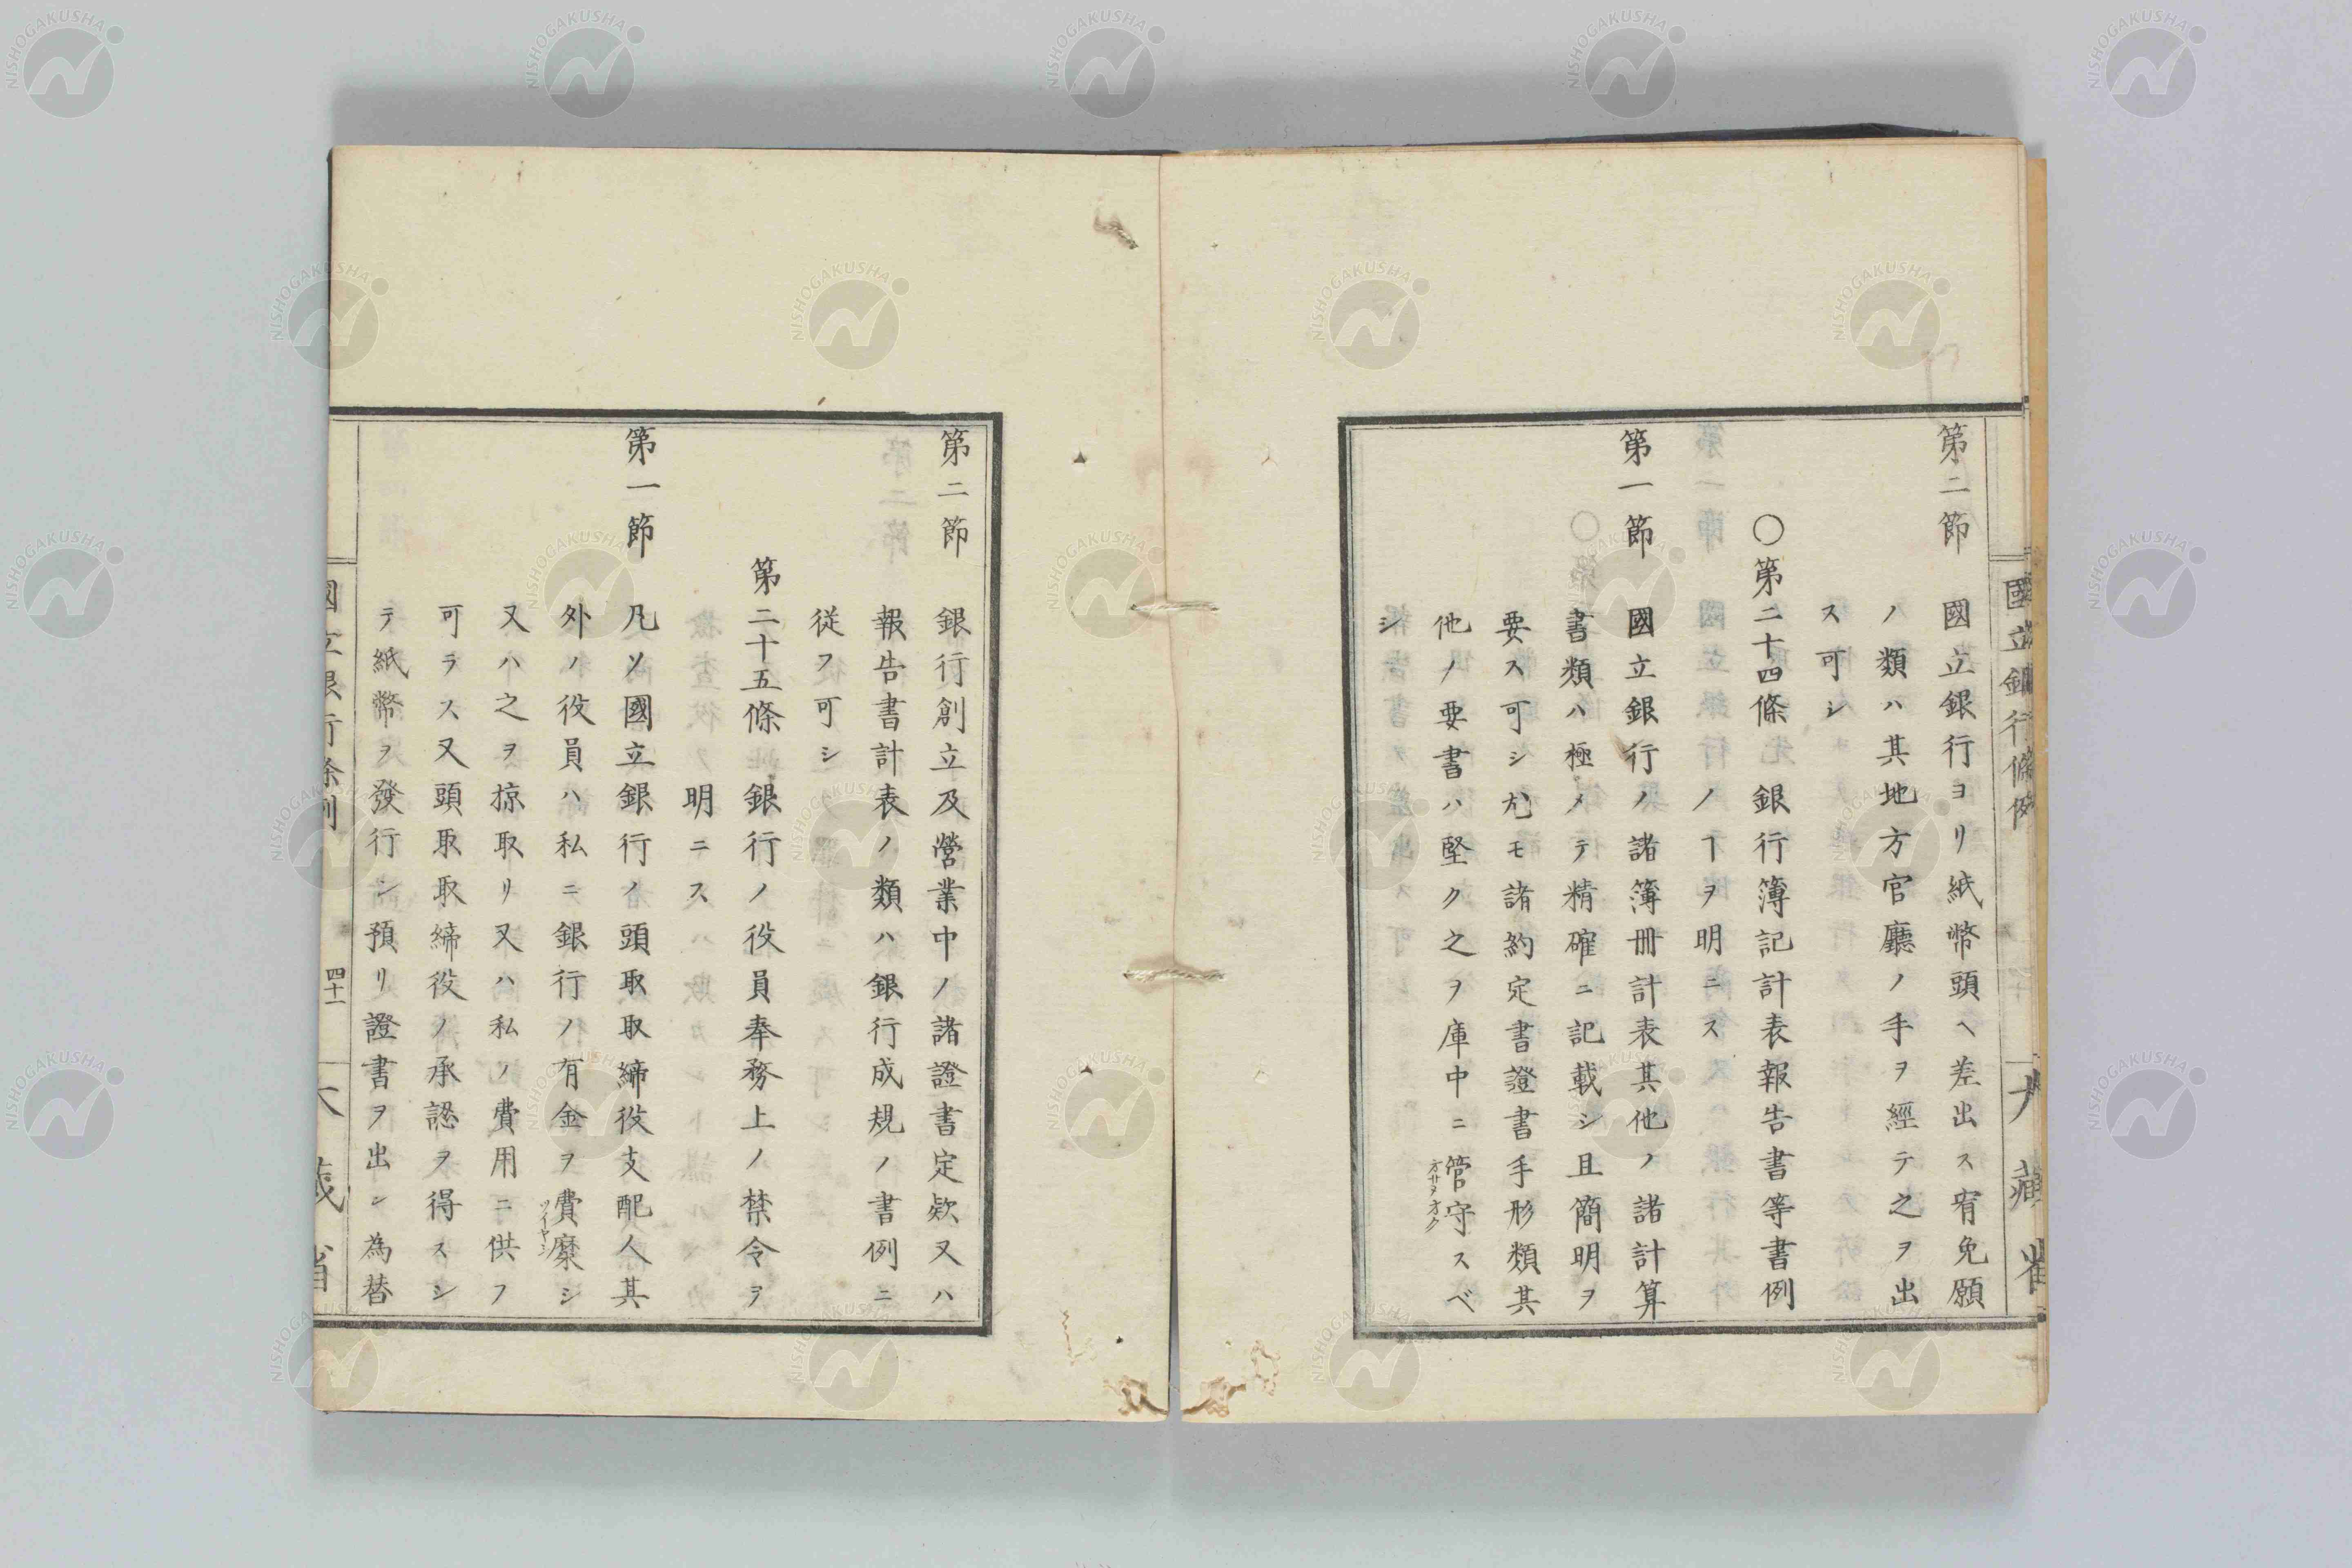 國立銀行條例
大藏省
第二節 國立銀行ヨリ紙幣頭ヘ差出ス宥免願
ノ類ハ其地方官廳ノ手ヲ經テ之ヲ出
ス可シ
〇第二十四條 銀行簿記計表報告書等書例
ノヿヲ明ニス
第一節 國立銀行ノ諸簿冊計表其他ノ諸計算
書類ハ極メテ精確ニ記載シ且簡明ヲ
要ス可シ尤モ諸約定書證書手形類其
他ノ要書ハ堅ク之ヲ庫中ニ管守スベ
オサヲオク
シ
第二節 銀行創立及營業中ノ諸證書定欵又ハ
報告書計表ノ類ハ銀行成規ノ書例ニ
従フ可シ
第二十五條 銀行ノ役員奉務上ノ禁令ヲ
明ニス
第一節 凡ソ國立銀行ノ頭取取締役支配人其
外ノ役員ハ私ニ銀行ノ有金ヲ費糜シ
ツイヤシ
又ハ之ヲ掠取リ又ハ私ノ費用ニ供フ
可ラス又頭取取締役ノ承認ヲ得スシ
テ紙幣ヲ發行シ預リ證書ヲ出シ為替
國立銀行條例
四十一
大藏省
NISHOGAKUSHA